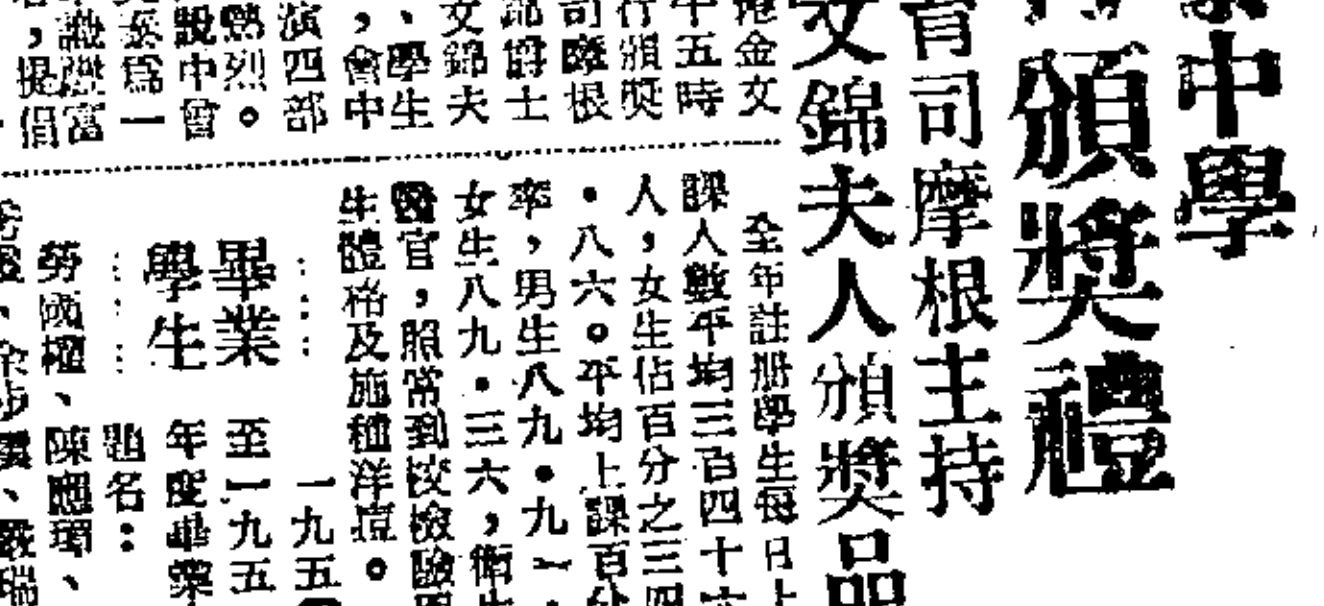 中學
頒獎禮
育司摩根主持
文錦夫人頒獎品
港金文
午五時
行頒獎
司摩根
錦爵士
文錦夫
、學生
，會中
演四部
熱烈。
設中會
泰為一
識豐富
，提倡
全年註册學生每日上
課人數平均三百四十六
人，女生佔百分之三四
・八六。平均上課百分
率，男生八九・九一，
女生八九・三六，衛生
醫官，照常到校檢驗
生體格及施種洋痘。
畢業
學生
一九五
至一九五
年度畢業
題名：
勞國權、陳應琪、
、余步